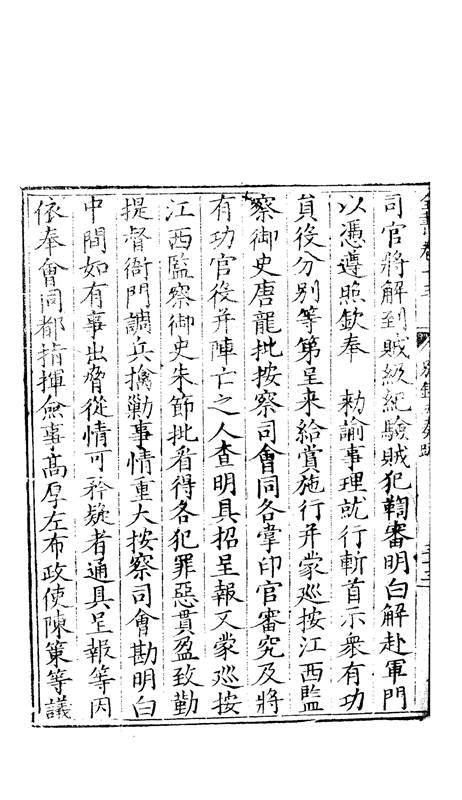 司官將解到賊級紀驗賊犯鞫審明白解赴軍門
以憑遵照欽奉　勑諭事理就行斬首示衆有功
員役分別等第呈来給賞施行并蒙巡按江西監
察御史唐龍批按察司會同各掌印官審究及將
有功官役并陣亡之人查明具招呈報又蒙巡按
江西監察御史朱節批看得各犯罪惡貫盈致勤
提督衙門調兵擒勦事情重大按察司會勘明白
中間如有事出脅從情可矜疑者通具呈報等因
依奉會同都指揮僉事高厚左布政使陳策等議